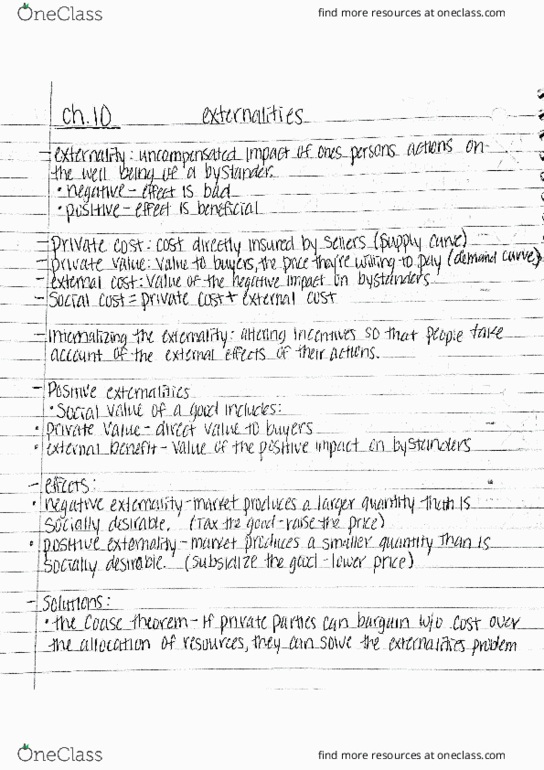 OneClass
find more resources at oneclass.com
Ch.10 externalities
- externality: uncompensated impact of ones persons actions on
the well being of a bystander.
• negative - effect is bad
• positive - effect is beneficial
- private cost: cost directly insured by sellers (supply curve)
- private value: value to buyers, the price they're willing to pay (demand curve)
- external cost: value of the negative impact on bystanders
- Social cost = private cost + external cost
- Internalizing the externality: altering incentives so that people take
account of the external effects of their actions.
- Positive externalities
• Social value of a good includes:
• private value - direct value to buyers
• external benefit - value of the positive impact on bystanders
- effects:
• negative externality - market produces a larger quantity than is
socially desirable. (Tax the good - raise the price)
• positive externality - market produces a smaller quantity than is
socially desirable. (subsidize the good - lower price)
- Solutions:
• the Coase theorem - If private parties can bargain w/o cost over
the allocation of resources, they can solve the externalities problem
OneClass
find more resources at oneclass.com